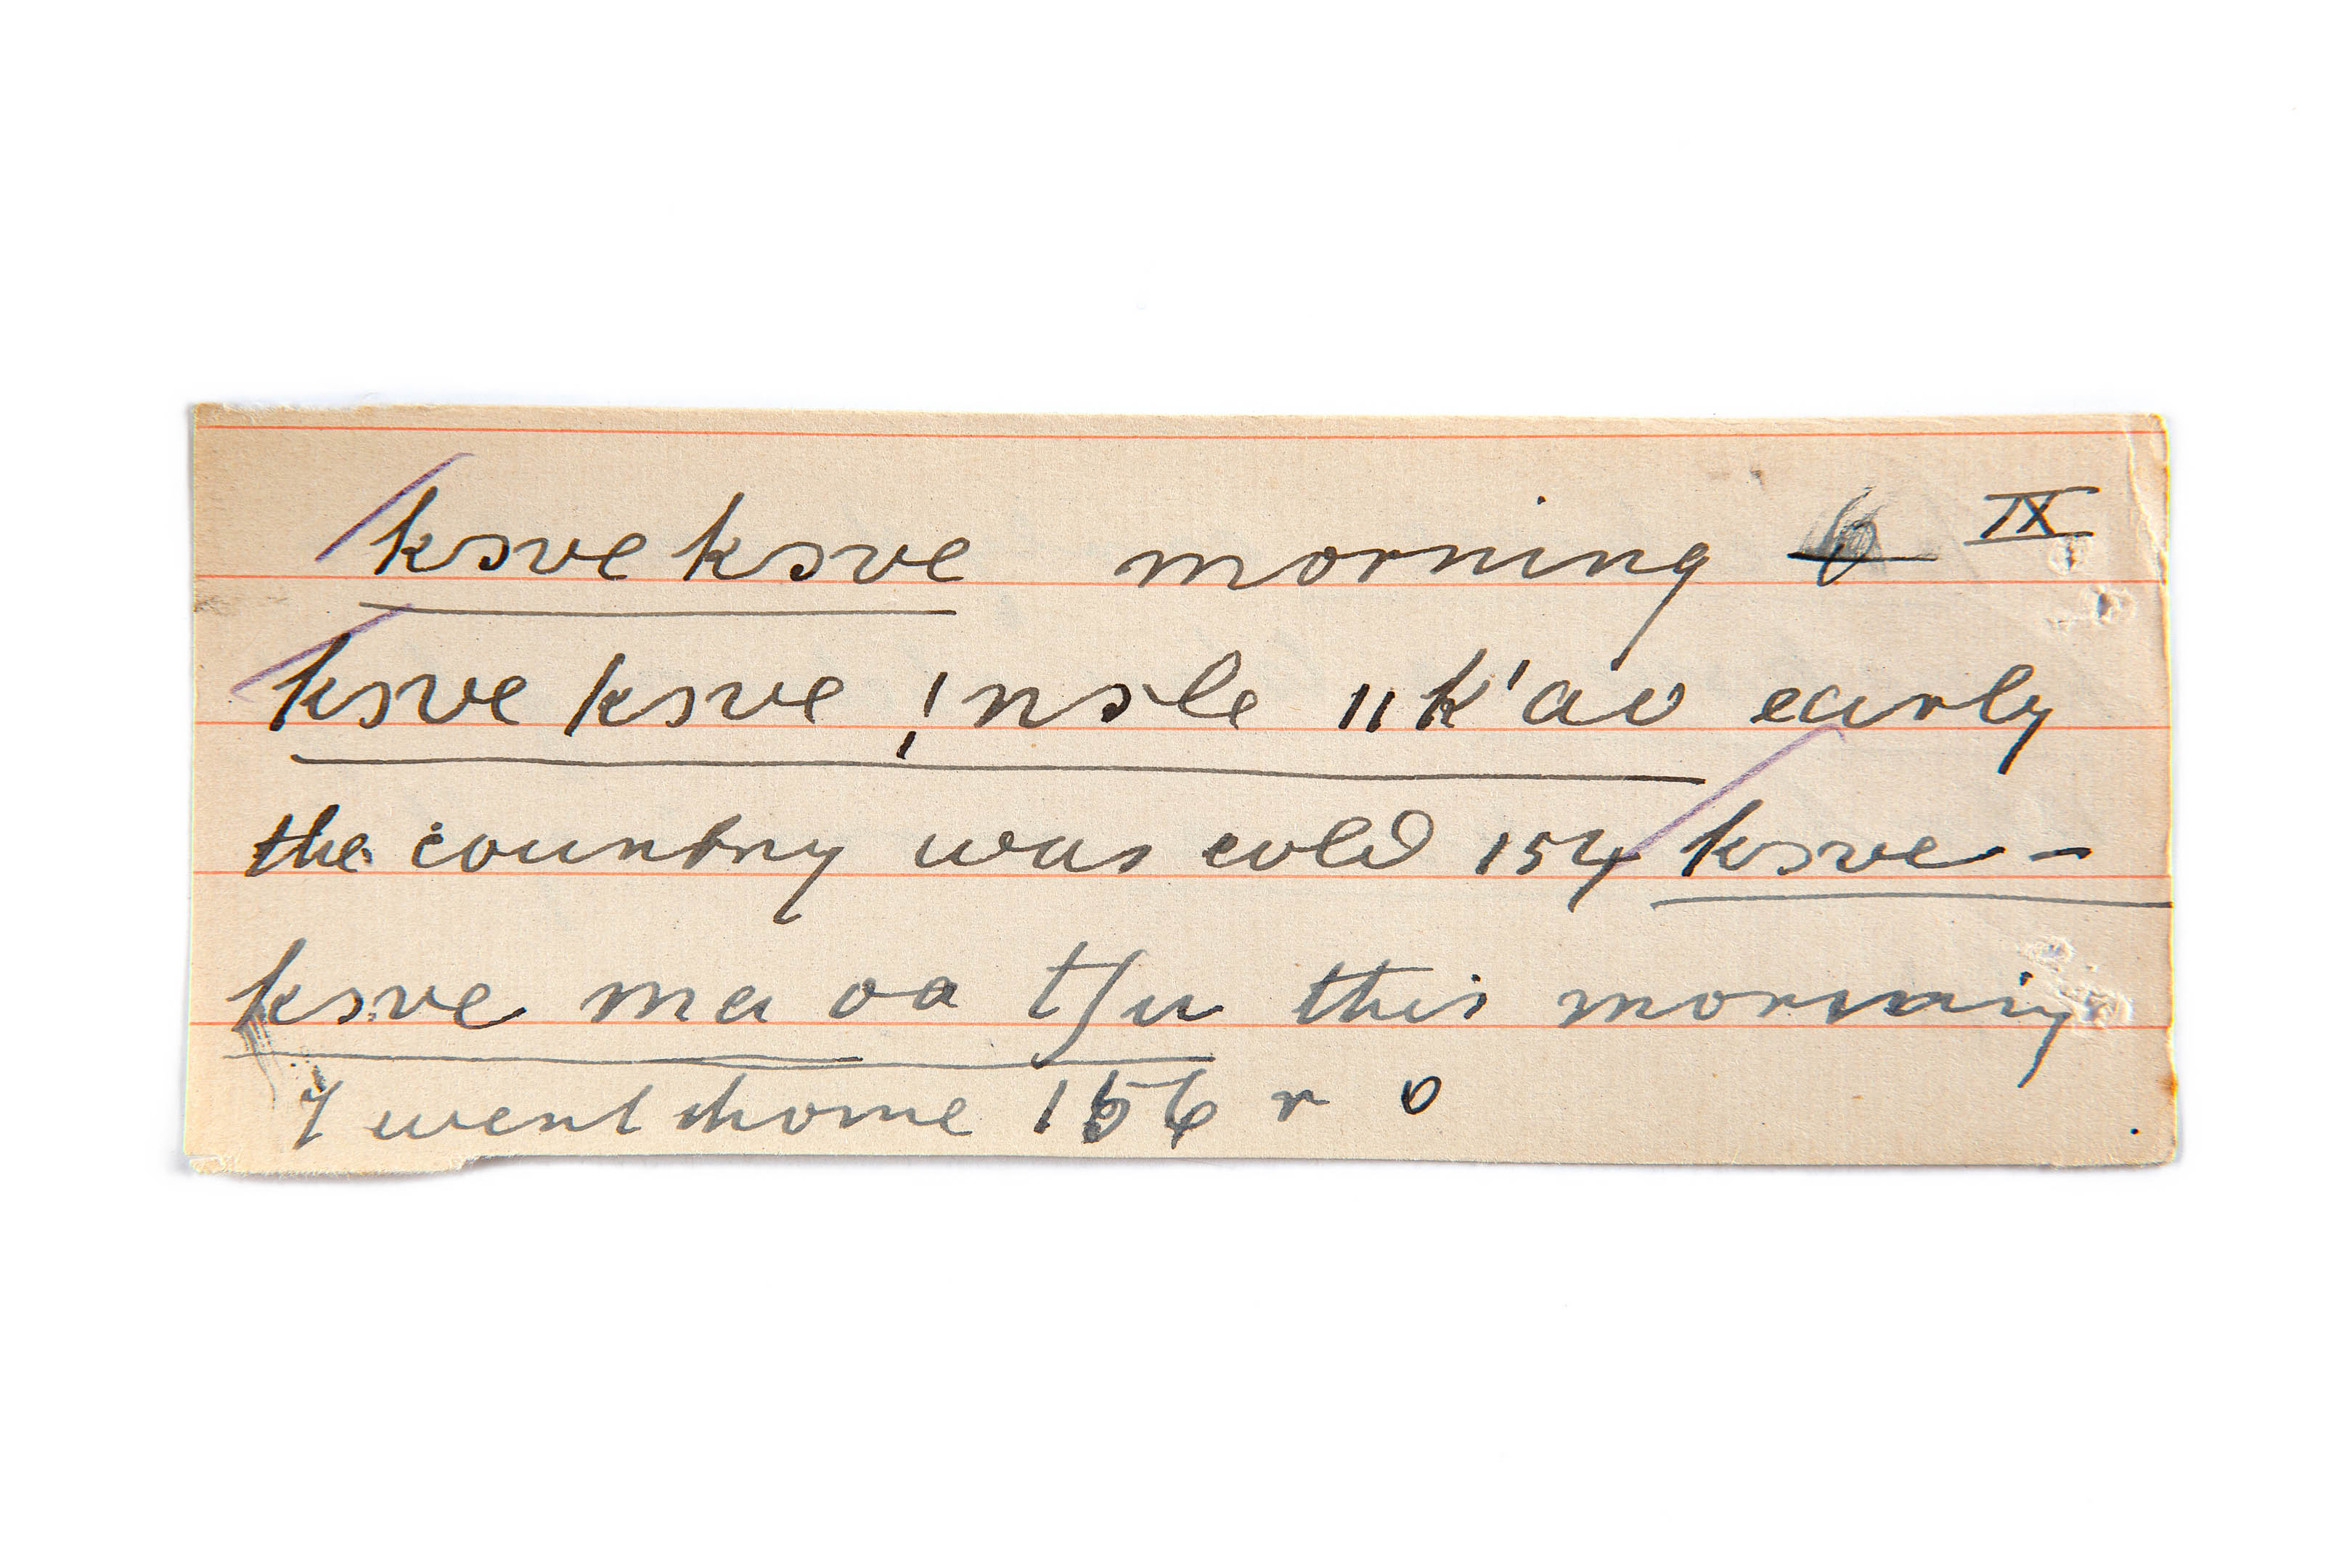 ksve ksve morning IX
ksve ksve ! nsle ǁk'ao early
the country was cold 154 ksve -
ksve ma oa tʃu this morning
I went home 156 r o